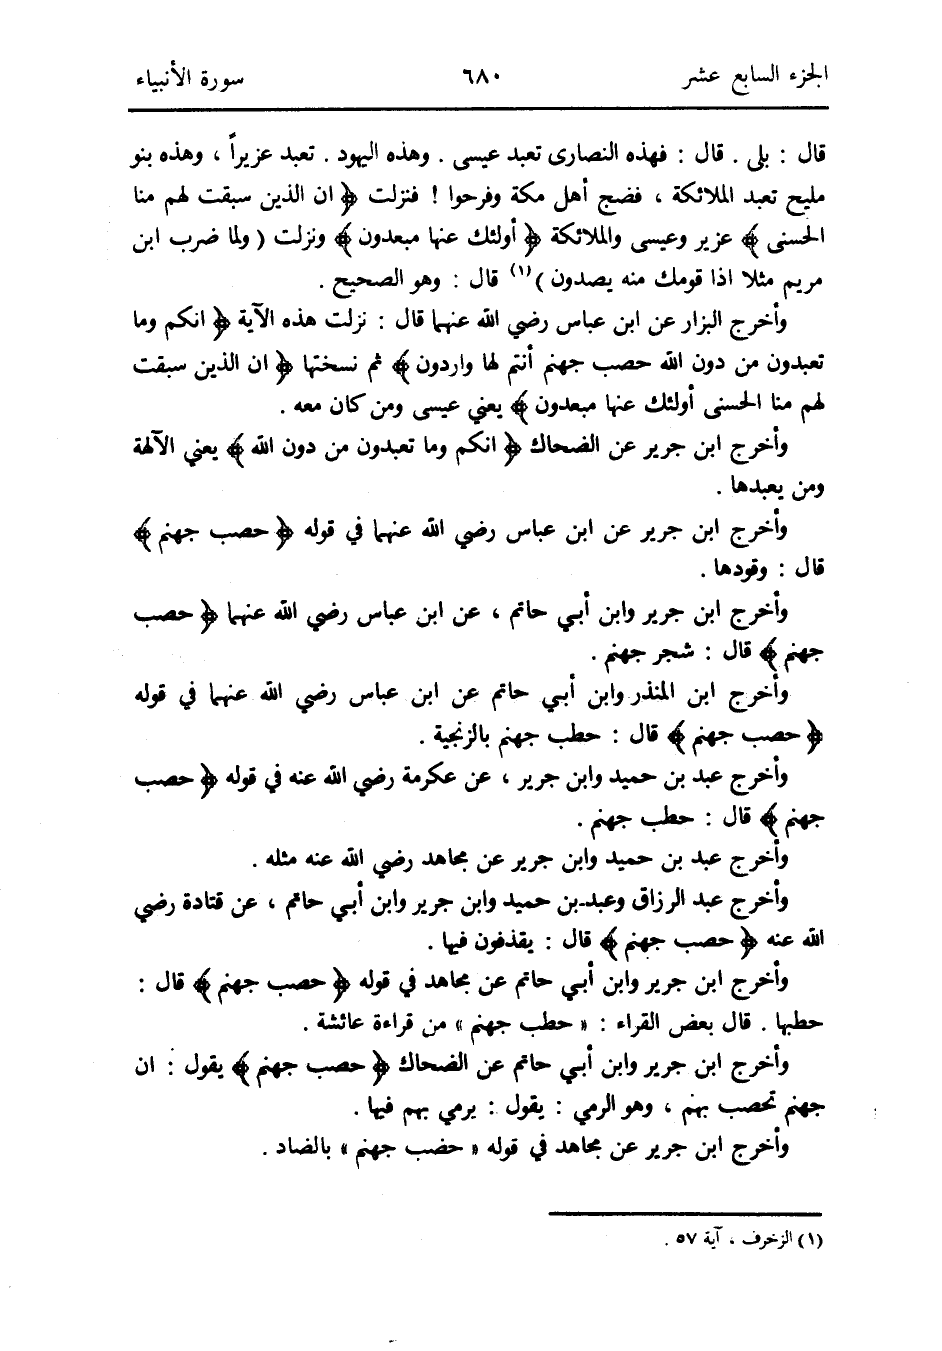 الجزء السابع عشر ٦٨٠ سورة الأنبياء
قال : بلى . قال : فهذه النصارى تعبد عيسى . وهذه اليهود . تعبد عزيراً ، وهذه بنو
مليح تعبد الملائكة ، فضج أهل مكة وفرحوا ! فنزلت ﴿ ان الذين سبقت لهم منا
الحسنى ﴾ عزير وعيسى والملائكة ﴿ أولئك عنها مبعدون ﴾ ونزلت ( ولما ضرب ابن
مريم مثلا اذا قومك منه يصدون ) (١) قال : وهو الصحيح .
وأخرج البزار عن ابن عباس رضي الله عنهما قال : نزلت هذه الآية ﴿ انكم وما
تعبدون من دون الله حصب جهنم أنتم لها واردون ﴾ ثم نسختها ﴿ ان الذين سبقت
لهم منا الحسنى أولئك عنها مبعدون ﴾ يعني عيسى ومن كان معه .
وأخرج ابن جرير عن الضحاك ﴿ انكم وما تعبدون من دون الله ﴾ يعني الآلهة
ومن يعبدها .
وأخرج ابن جرير عن ابن عباس رضي الله عنهما في قوله ﴿ حصب جهنم ﴾
قال : وقودها .
وأخرج ابن جرير وابن أبي حاتم ، عن ابن عباس رضي الله عنهما ﴿ حصب
جهنم ﴾ قال : شجر جهنم .
وأخرج ابن المنذر وابن أبي حاتم عن ابن عباس رضي الله عنهما في قوله
﴿ حصب جهنم ﴾ قال : حطب جهنم بالزنجية .
وأخرج عبد بن حميد وابن جرير ، عن عكرمة رضي الله عنه في قوله ﴿ حصب
جهنم ﴾ قال : حطب جهنم .
وأخرج عبد بن حميد وابن جرير عن مجاهد رضي الله عنه مثله .
وأخرج عبد الرزاق وعبد بن حميد وابن جرير وابن أبي حاتم ، عن قتادة رضي
الله عنه ﴿ حصب جهنم ﴾ قال : يقذفون فيها .
وأخرج ابن جرير وابن أبي حاتم عن مجاهد في قوله ﴿ حصب جهنم ﴾ قال :
حطبها . قال بعض القراء : « حطب جهنم » من قراءة عائشة .
وأخرج ابن جرير وابن أبي حاتم عن الضحاك ﴿ حصب جهنم ﴾ يقول : ان
جهنم تحصب بهم ، وهو الرمي : يقول : يرمي بهم فيها .
وأخرج ابن جرير عن مجاهد في قوله « حضب جهنم » بالضاد .
(١) الزخرف ، آية ٥٧ .